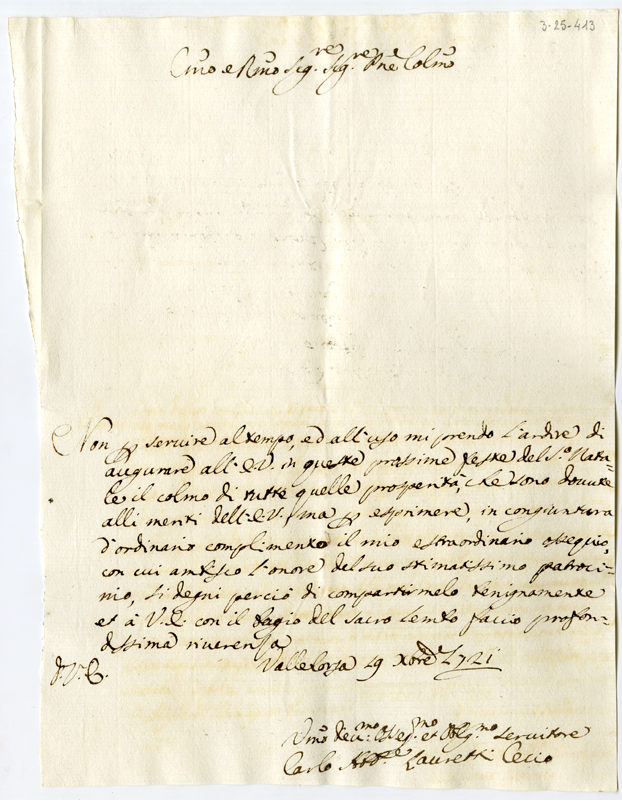 3-25-413
Emo e Rmo Sig.re Sig.re Pne Colmo
Non p servire al tempo, ed all'uso mi prendo l'ardire di
augurare all'E.V. in queste prossime feste del S.o Nata-
le il colmo di tutte quelle prosperità, che sono dovute
alli meriti dell'E.V., ma p esprimere, in congiuntura
d'ordinario complimento il mio estraordinario ossequio,
con cui ambisco l'onore del suo stimatissimo patroci-
nio, si degni perciò di compartirmelo benignamente
et à V.E. con il bagio del sacro lembo faccio profon-
dissima riverenza
D. V. E. Vallecorsa 19 Xbre 1721
Vmo Devmo et Obligmo servitore
Carlo Lauretti Cecio